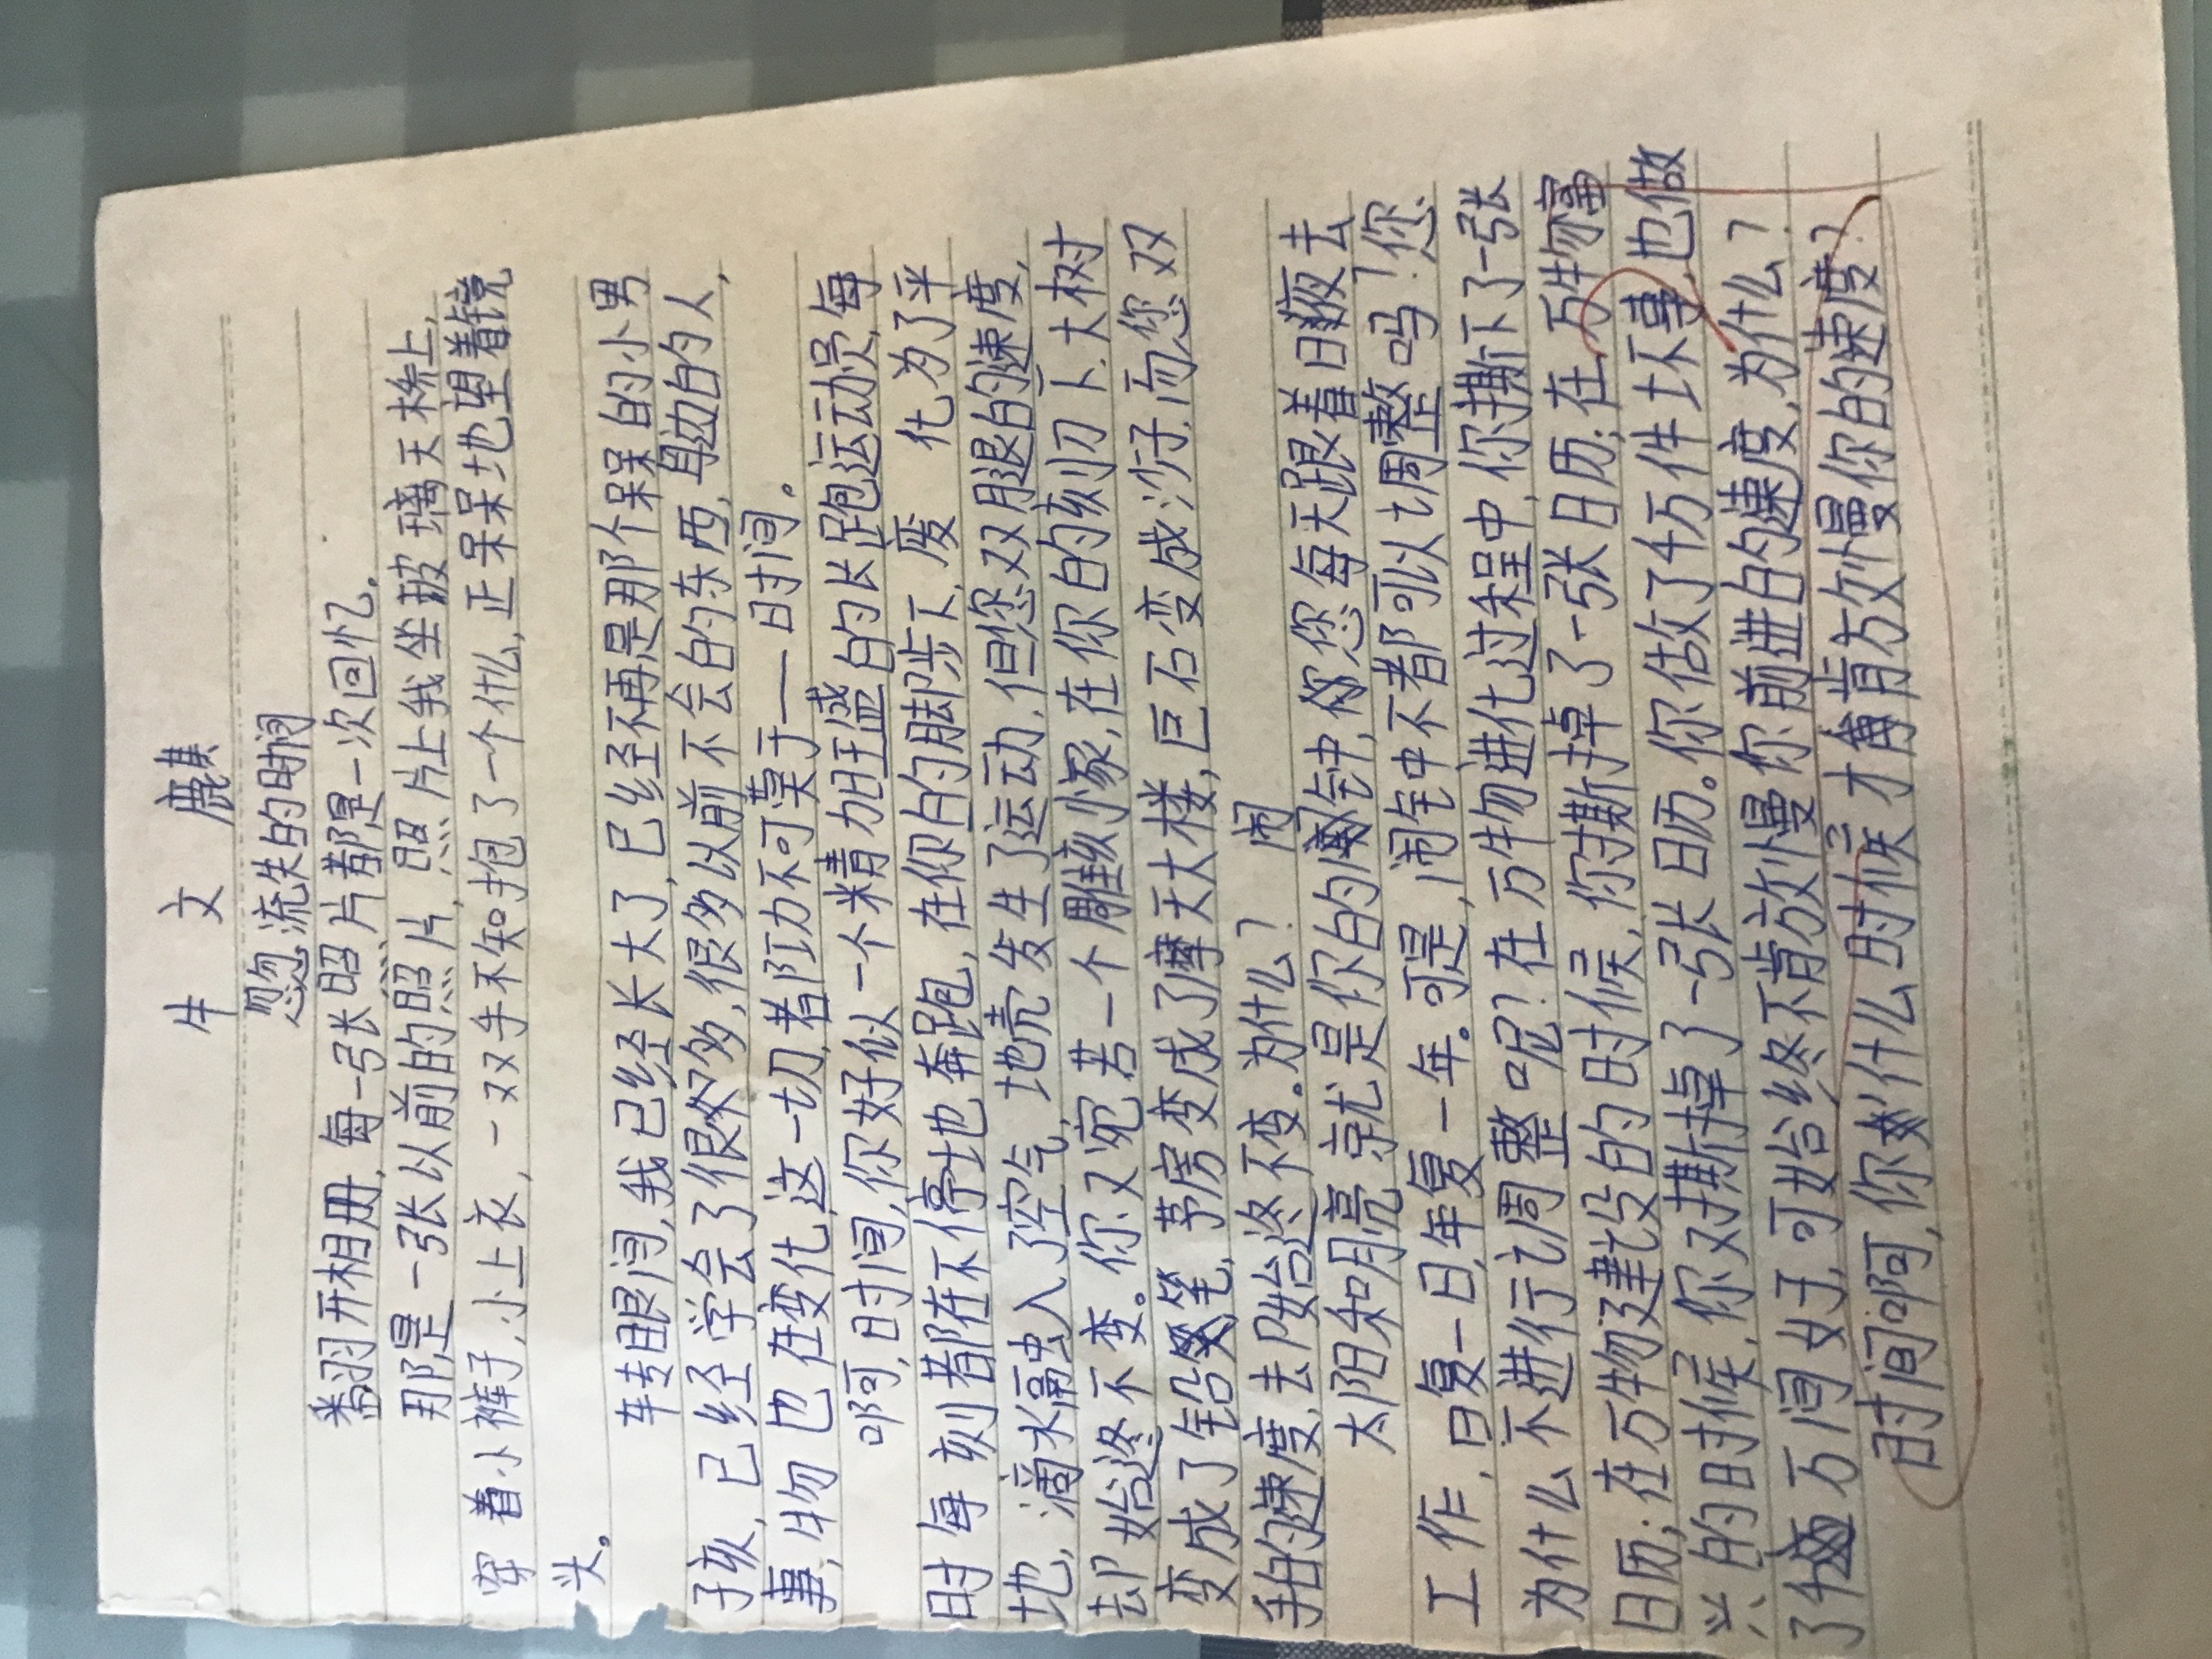 牛 文 麒
忽忽流失的时间
翻开相册,每一张照片都是一次回忆。
那是一张以前的照片,照片上我坐玻璃天桥上,
穿着小裤子,小上衣,一双手不知抱了一个什么,正呆呆地望着镜
头。
转眼间,我已经长大了,已经不再是那个呆呆的小男
孩,已经学会了很多,很多以前不会的东西,身边的人,
事,物也在变化,这一切,都归功不可莫于——时间。
啊,时间,你好似一个精力旺盛的长跑运动员,每
时每刻都在不停地奔跑,在你的脚步下,废 化为了平
地,滴水融入了空气,地壳发生了运动,但您双腿的速度,
却始终不变。你又宛若一个雕刻家,在你的刻刀下,大树
变成了铅笔,茅房变成了摩天大楼,巨石变成沙子,而您双
手的速度,却始终不变。为什么?
太阳和月亮就是你的闹钟,您每天跟着日夜去
工作,日复一日,年复一年。可是,闹钟不都可以调整吗?您
为什么不进行调整呢?在万物进化过程中,你撕下了一张
日历;在万物建设的时候,你撕掉了一张日历;在万物富
兴的时候,你又撕掉了一张日历。你做了4万件坏事,也做
了 万间好事,可始终不肯放慢你前进的速度,为什么?
时间啊,你什么时候才肯放慢你的速度?